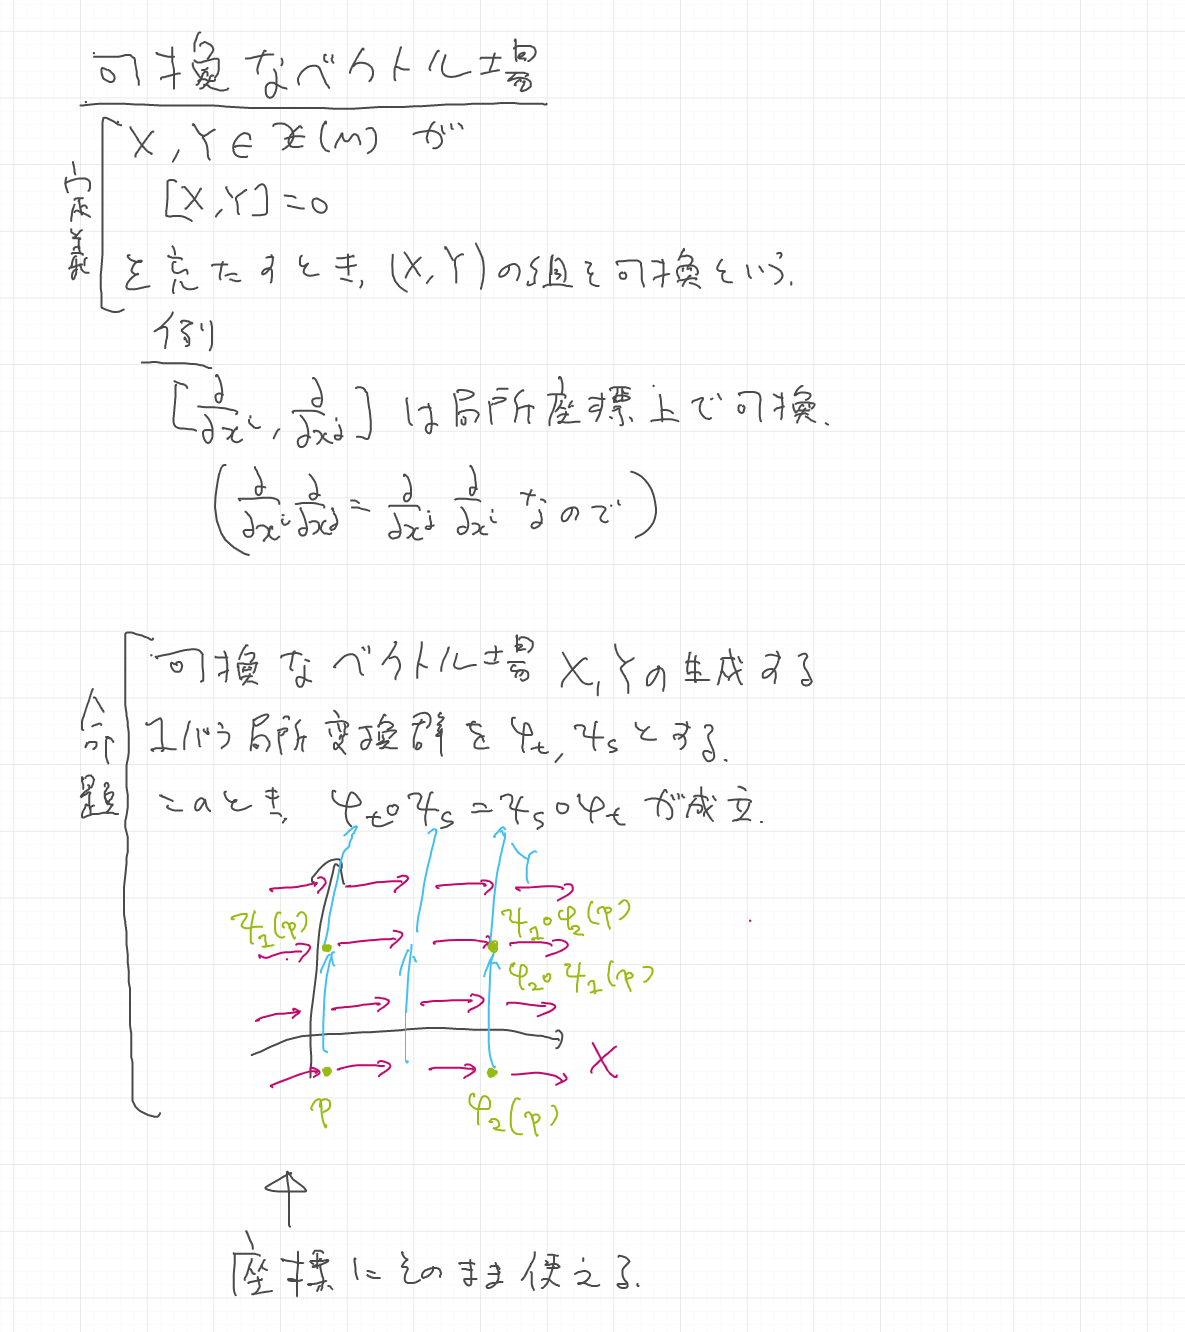 可換なベクトル場
定義
X, Y ∈ 𝔛(M) が
[X, Y] = 0
を充たすとき, (X, Y) の組を可換という.
例
[∂/∂x^i, ∂/∂x^j] は局所座標上で可換.
(∂/∂x^i ∂/∂x^j = ∂/∂x^j ∂/∂x^i なので)
命題
可換なベクトル場 X, Y の生成する
1パラ局所変換群を φ_t, ψ_s とする.
このとき, φ_t∘ψ_s = ψ_s∘φ_t が成立.
Y
ψ_1(p)
ψ_1∘φ_2(p)
φ_2∘ψ_1(p)
X
p
φ_2(p)
座標にそのまま使える.